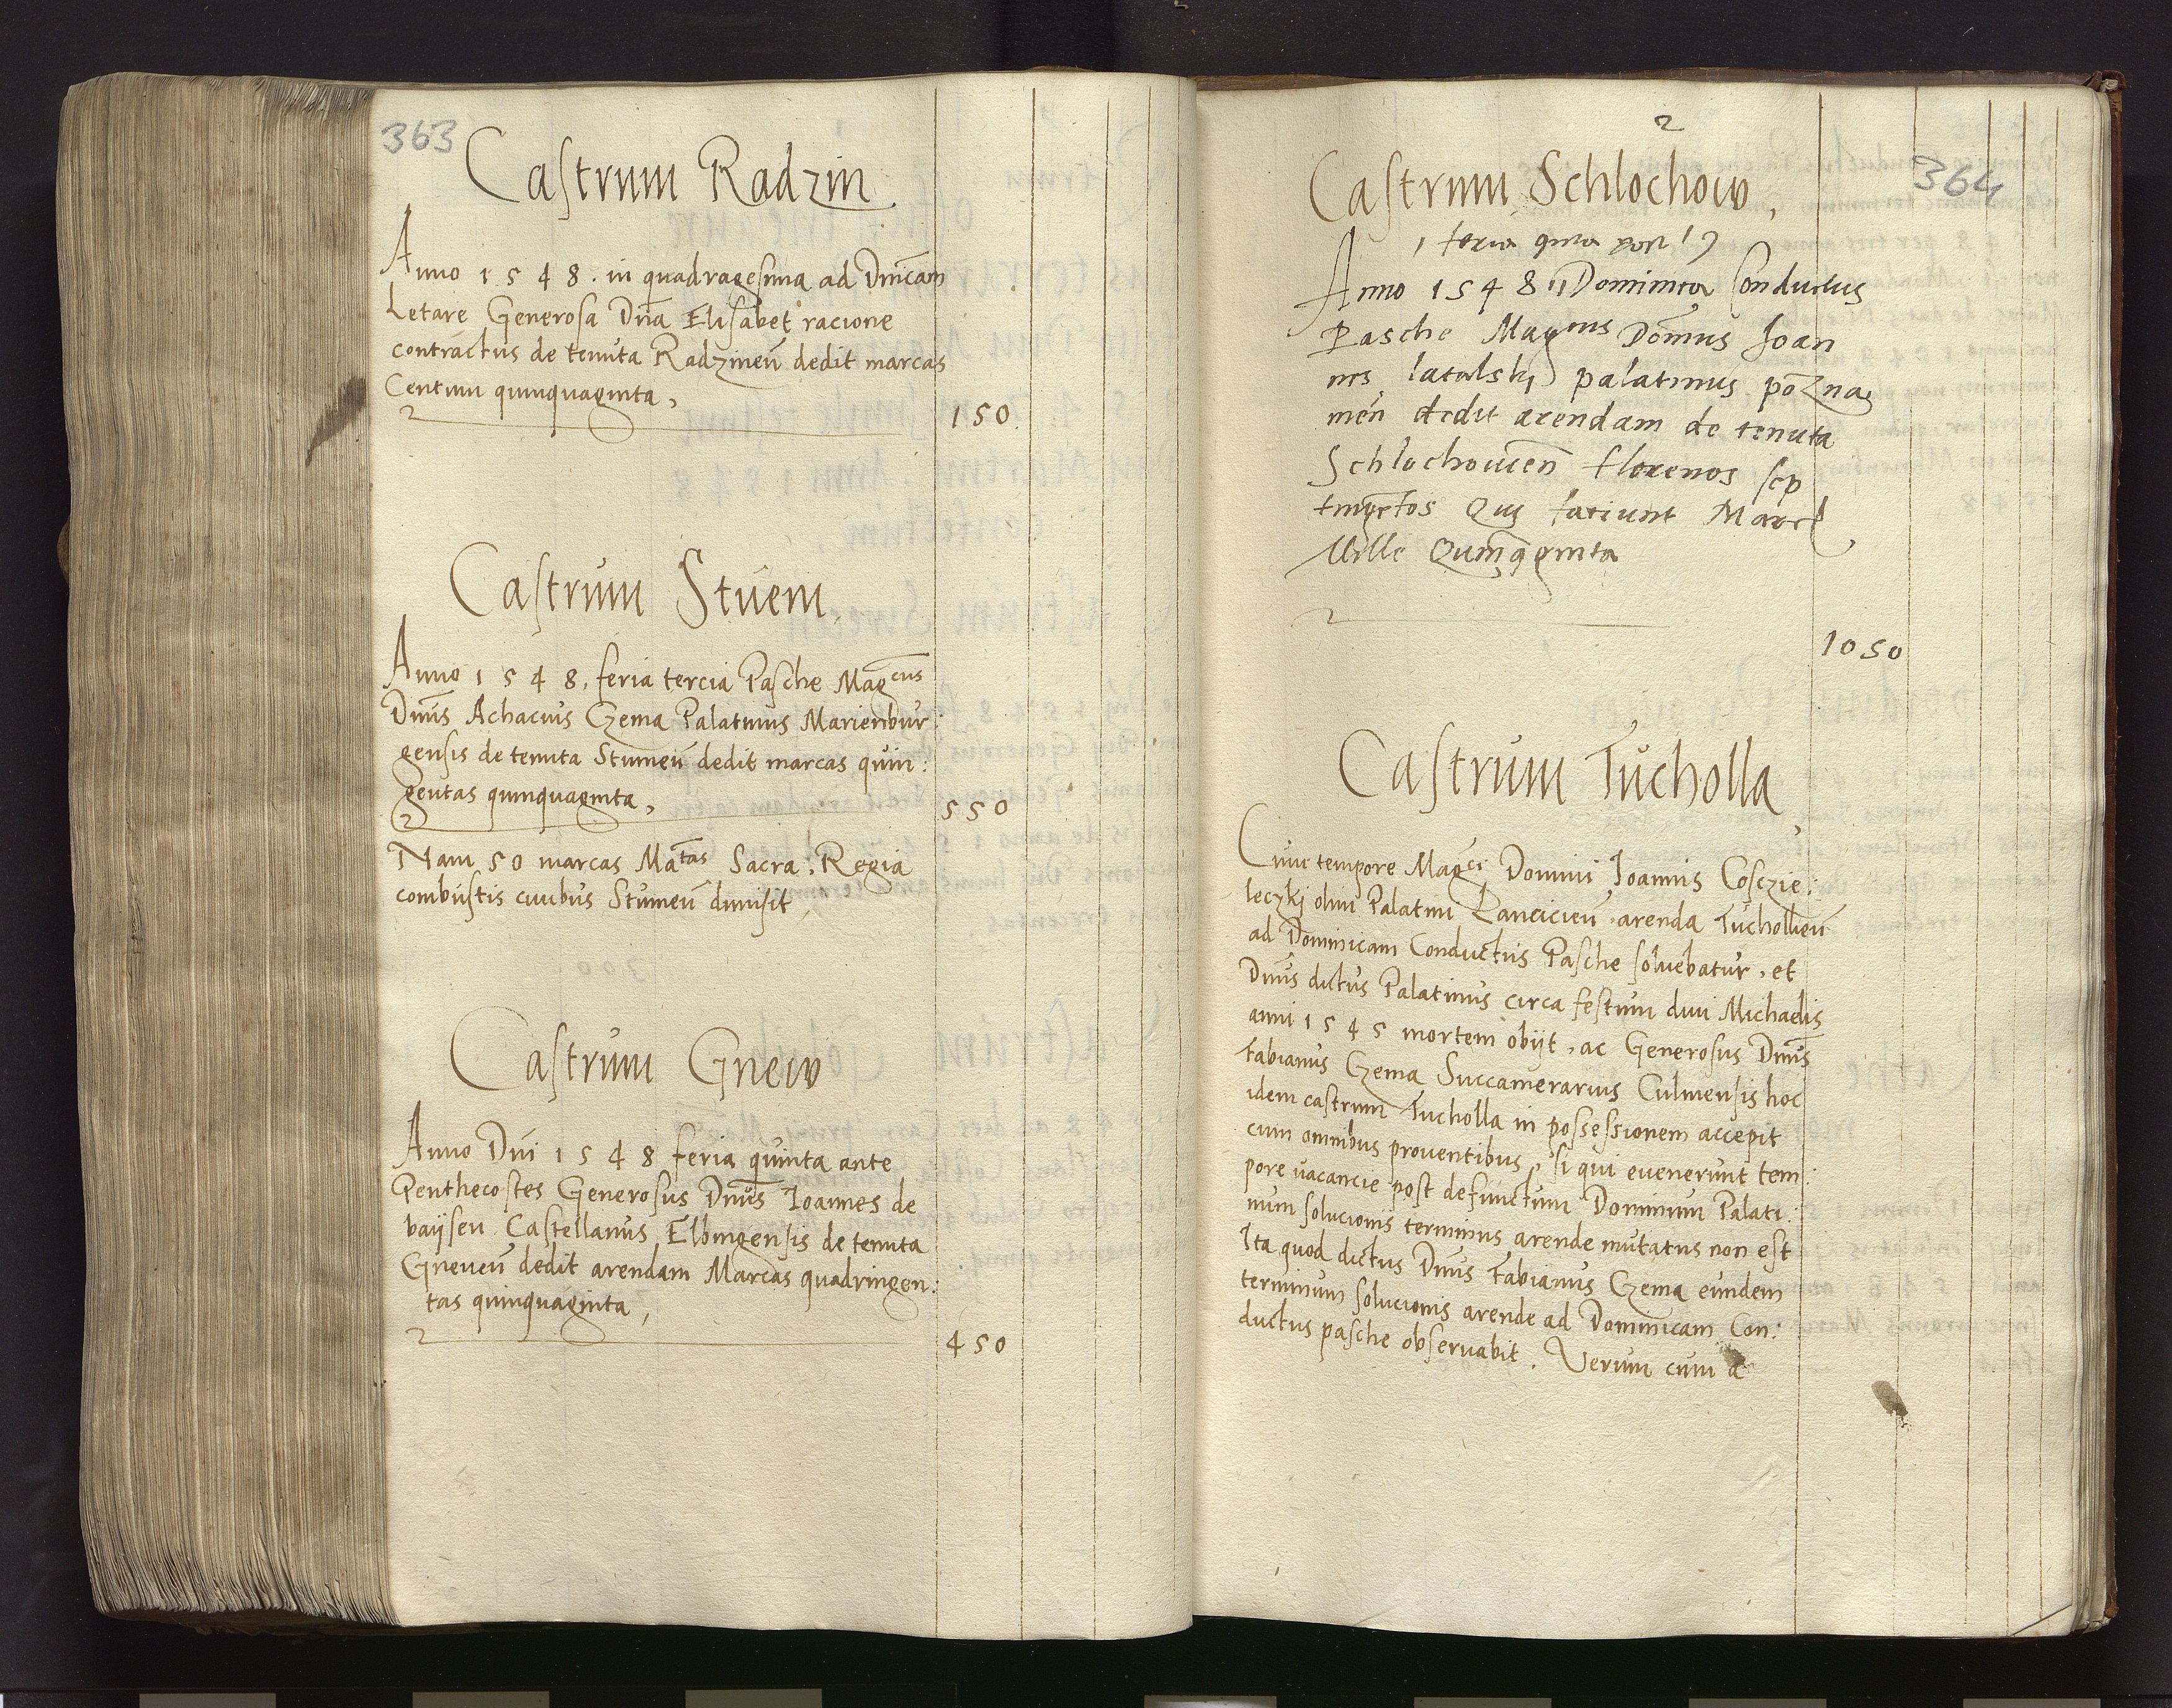 363
Castrum Radzin
Anno 1548. in quadragesima ad Dnicam
Letare Generosa Dna Elisabet racione
contractus de tenuta Radzinen dedit marcas
Centum quinquaginta,
150
Castrum Stuem,
Anno 1548, feria tercia Pasche Magcus
Dnus Achacius Czema Palatinus Marienbur:
gensis de tenuta Stumen dedit marcas quin:
gentas quinquaginta,
550
Nam 50 marcas Matas Sacra: Regia
combustis curibus Stumen dimisit,
Castrum Gnew
Anno Dni 1548 feria quinta ante
Penthecostes Generosus Dnus Ioannes de
baysen Castellanus Elbingensis de tenuta
Gneuen dedit arendam Marcas quadringen:
tas quinquaginta,
450
2
364
Castrum Schlochow,
feria qnta post
Anno 1548 Dominica Conductus
Pasche Magcus Domnus Joan
nes latalski palatinus pozna
men dedit arendam de tenuta
Schlochouien florenos sep
tingetos Qui faciunt Marc
Mille Quinqginta
1050
Castrum Tucholla,
Cum tempore Magci Domini Ioannis Cosczie:
leczkj olim Palatini Lancicien, arenda Tuchollien
ad Dominicam Conductus Pasche soluebatur, et
Dnus dictus Palatinus circa festum diui Michaelis
anni 1545 mortem obijt, ac Generosus Dnus
Fabianus Czema Succamerarius Culmensis hoc
idem castrum Tucholla in possessionem accepit
cum omnibus prouentibus, si qui euenerunt tem:
pore vacancie post defunctum Dominum Palati:
num solucionis terminus arende mutatus non est
Ita quod dictus Dnus Fabianus Czema eundem
terminum solucionis arende ad Dominicam Con:
ductus pasche obseruabit. Verum cum a